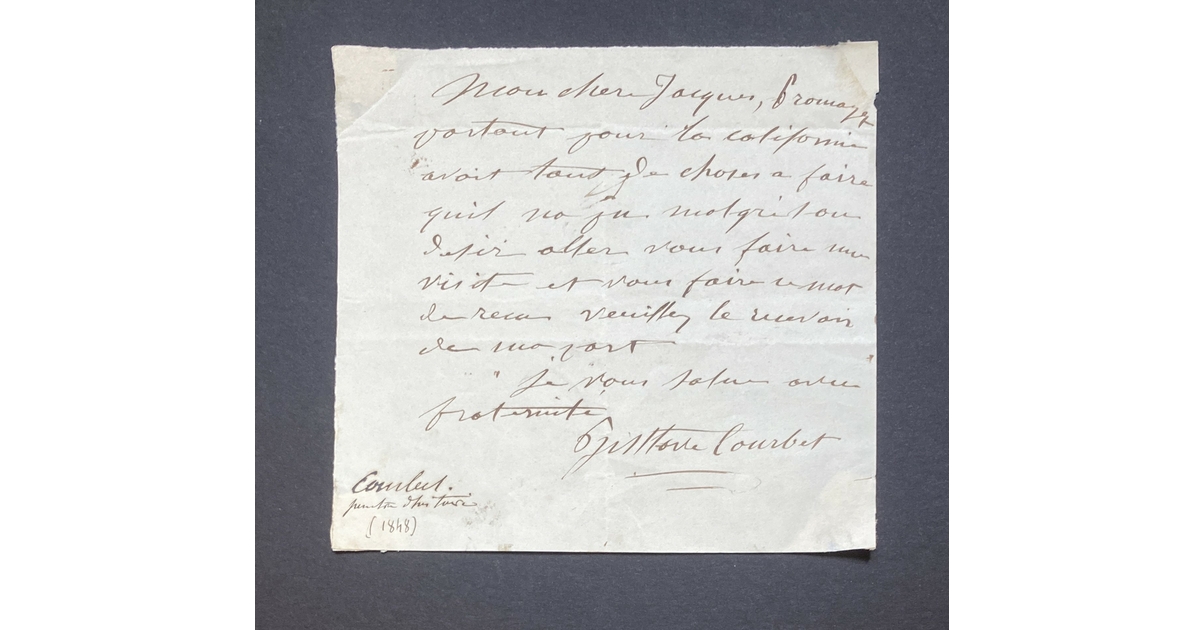 Mon cher Jacques, Promayet
partant pour la californie
avait tant de choses a faire
quil na pu malgré son
desir aller vous faire une
visite et vous faire ce mot
de recu veuillez le recevoir
de ma part
je vous salue avec
fraternité
Gustave Courbet
Courbet.
peintre d'histoire
(1848)